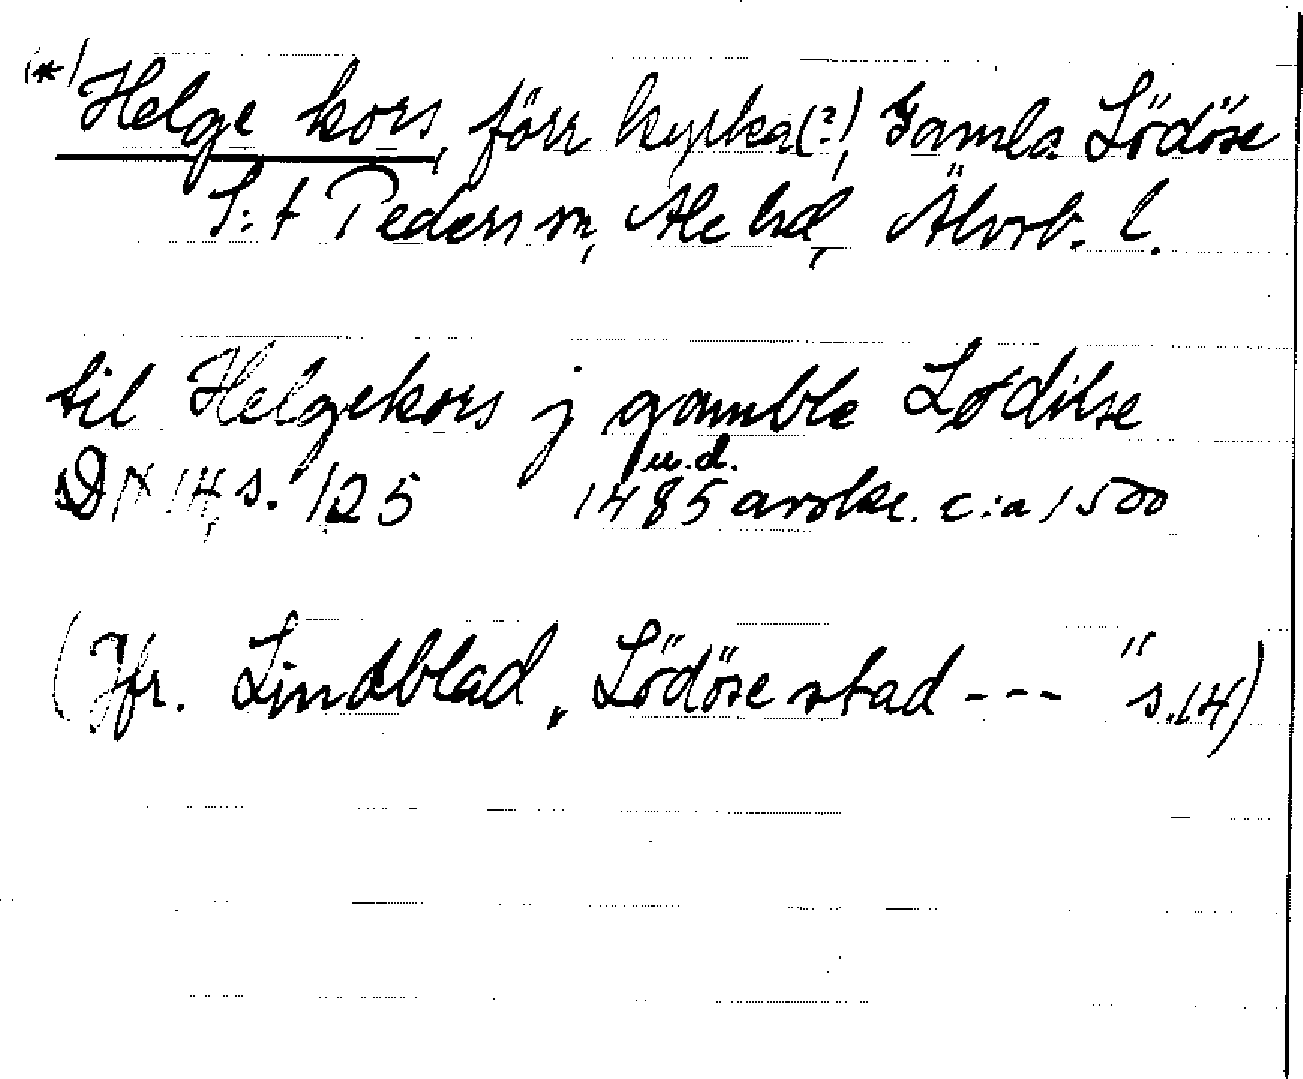 (*) Helge kors, förr kyrka(?), Gamla Lödöse
S:t Peders sn, Ale hd, Älvsb. l.
til Helgekors j gamble Lødilse
u.d.
DN 14, s. 125 1485 avskr. c:a 1500
(Jfr. Lindblad, Lödöse stad --- " s. 14)